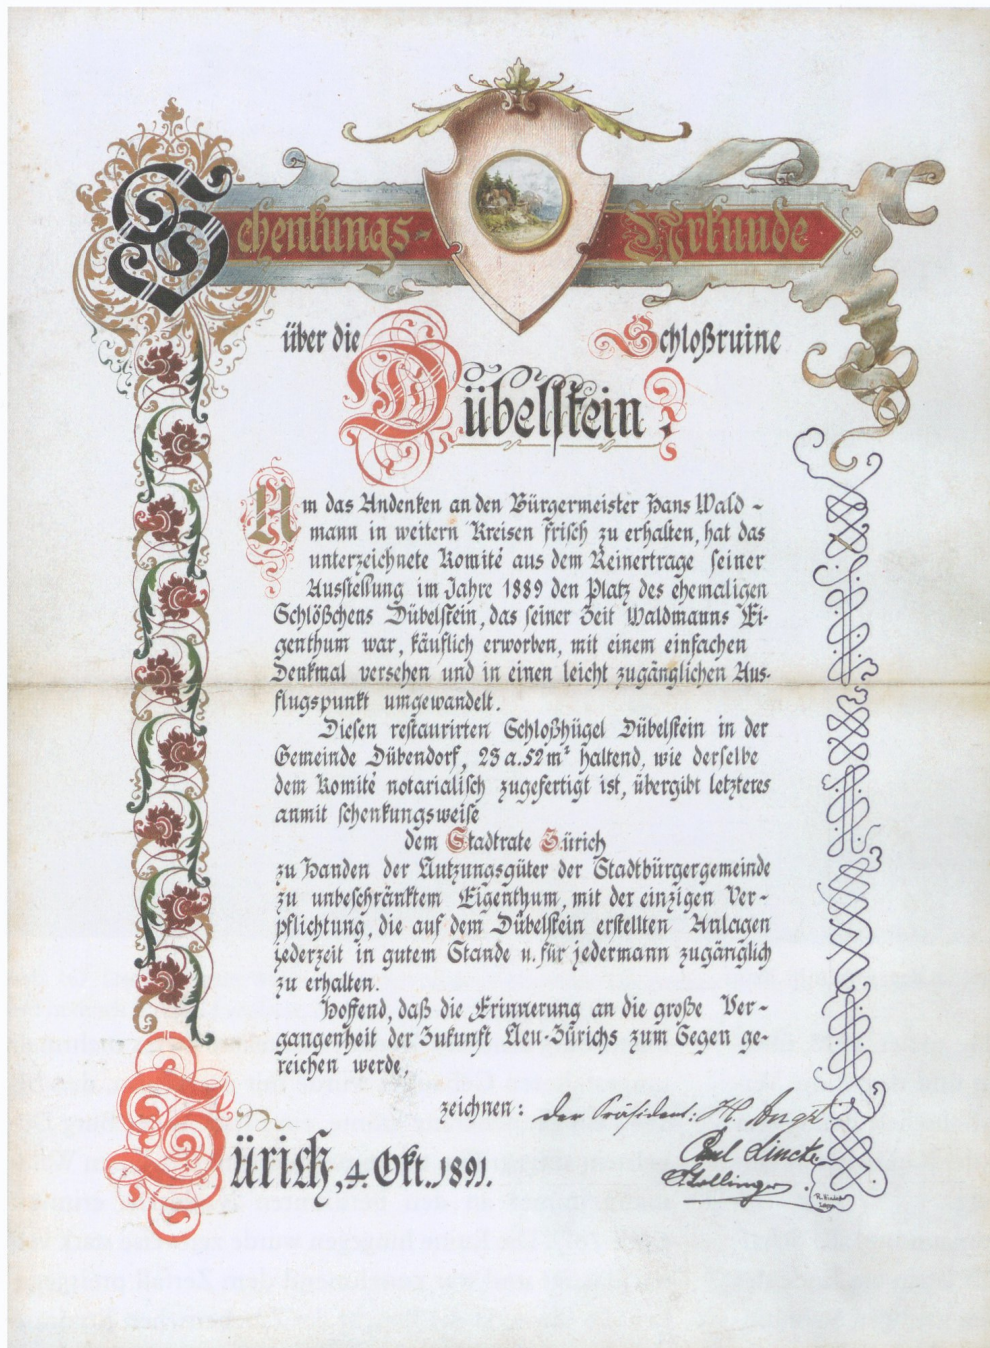 Schenkungs-Urkunde
über die Schloßruine
Dübelstein.
Um das Andenken an den Bürgermeister Hans Wald-
mann in weitern Kreisen frisch zu erhalten, hat das
unterzeichnete Komité aus dem Reinertrage seiner
Ausstellung im Jahre 1889 den Platz des ehemaligen
Schlößchens Dübelstein, das seiner Zeit Waldmanns Ei-
genthum war, käuflich erworben, mit einem einfachen
Denkmal versehen und in einen leicht zugänglichen Aus-
flugspunkt umgewandelt.
Diesen restaurirten Schloßhügel Dübelstein in der
Gemeinde Dübendorf, 23 a. 52 m² haltend, wie derselbe
dem Komité notarialisch zugefertigt ist, übergibt letzteres
anmit schenkungsweise
dem Stadtrate Zürich
zu Handen der Nutzungsgüter der Stadtbürgergemeinde
zu unbeschränktem Eigenthum, mit der einzigen Ver-
pflichtung, die auf dem Dübelstein erstellten Anlagen
jederzeit in gutem Stande u. für jedermann zugänglich
zu erhalten.
Hoffend, daß die Erinnerung an die große Ver-
gangenheit der Zukunft Neu-Zürichs zum Segen ge-
reichen werde,
zeichnen: Der Präsident: H. Angst
Paul Lincke
Zürich, 4. Okt. 1891.